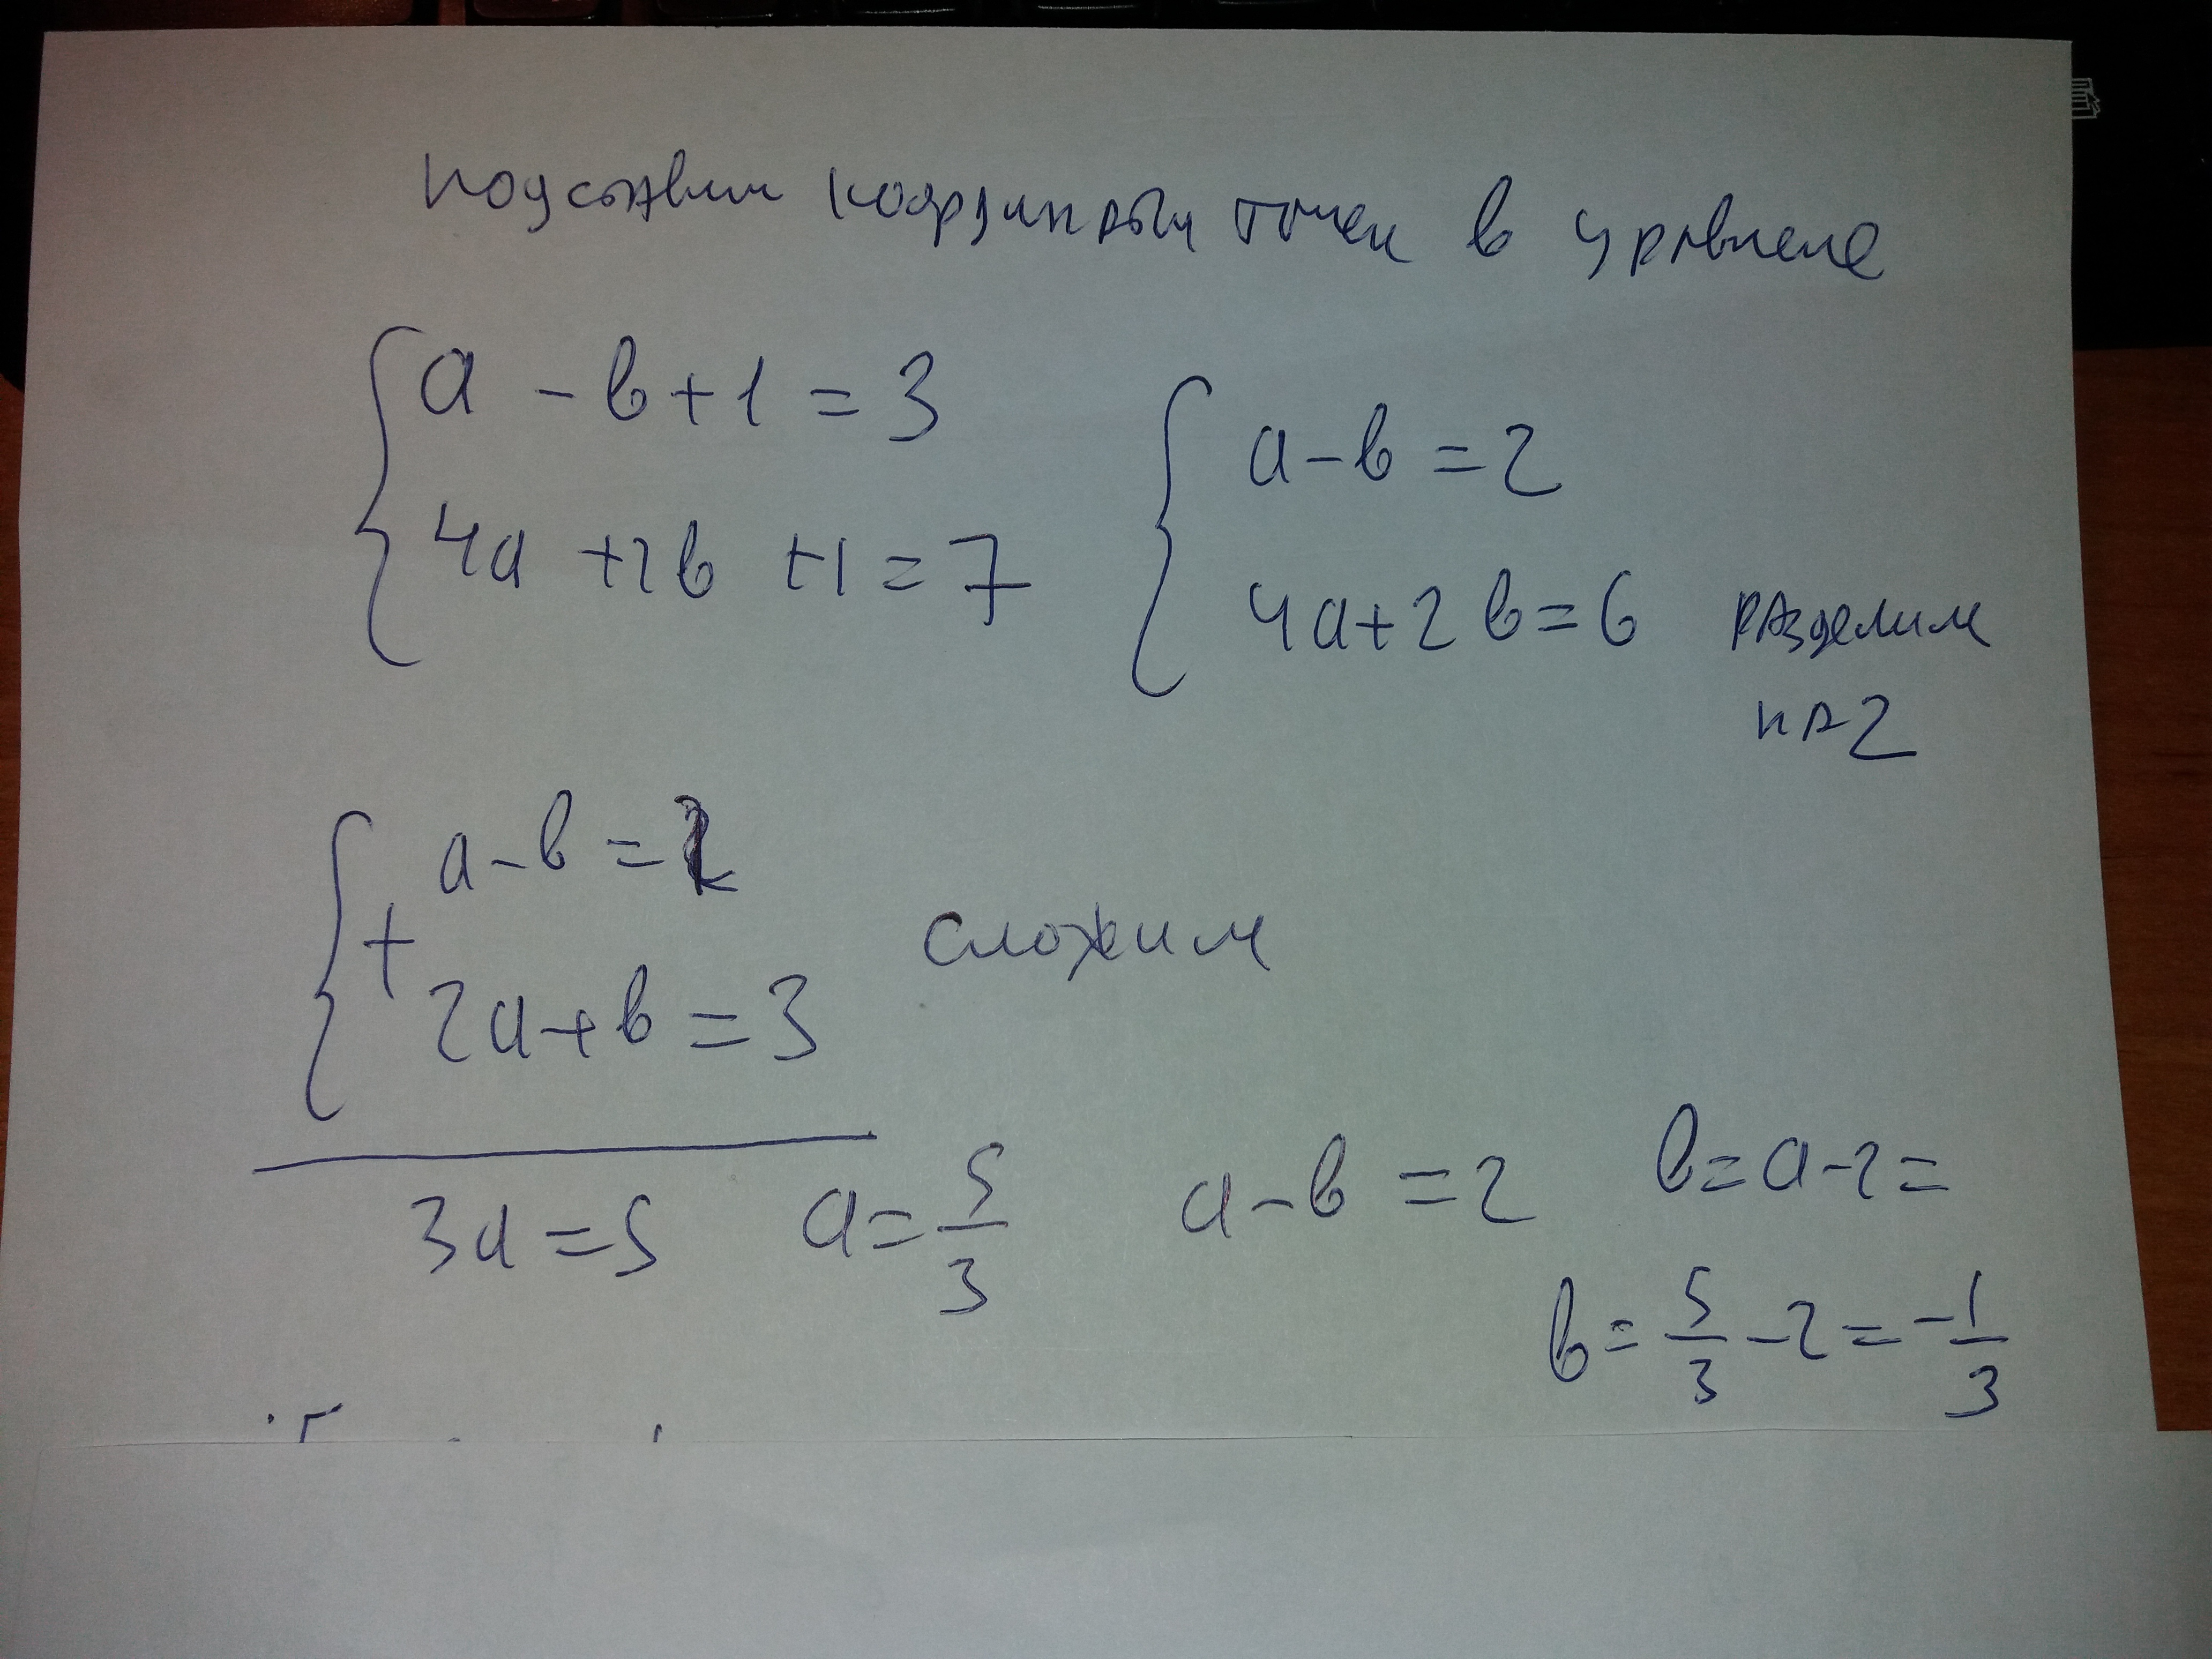 подставим координаты точек в уравнение
a - b + 1 = 3
4a + 2b + 1 = 7
a - b = 2
4a + 2b = 6 разделим
на 2
a - b = 2
+
2a + b = 3
сложим
3a = 5 a = 5/3 a - b = 2 b = a - 2 =
b = 5/3 - 2 = -1/3